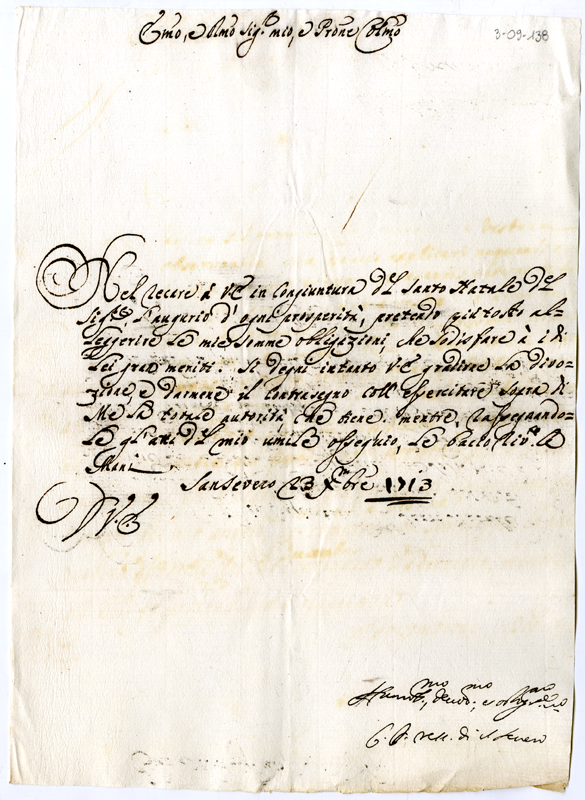 Emo, e Rmo Sig.r mio, e Prone Colmo
3-09-138
Nel recare à V.E. in congiuntura del Santo Natale del
Sig.re l'augurio d'ogni prosperità, pretendo più tosto al-
leggerire le mie somme obligazioni, che sodisfare à i di
Lei gran meriti. Si degni intanto V.E. gradire la divo-
zione, e darmene il contrasegno coll'esercitare sopra di
Me la totale autorità che tiene. mentre, rassegnando-
le gli atti del mio umile ossequio, le bacio riv.te le
Mani
SanSevero 23 Xbre 1713
D. V. E.
Humil.mo, devo.mo, e oblig.mo
Vesc. di S. Severo